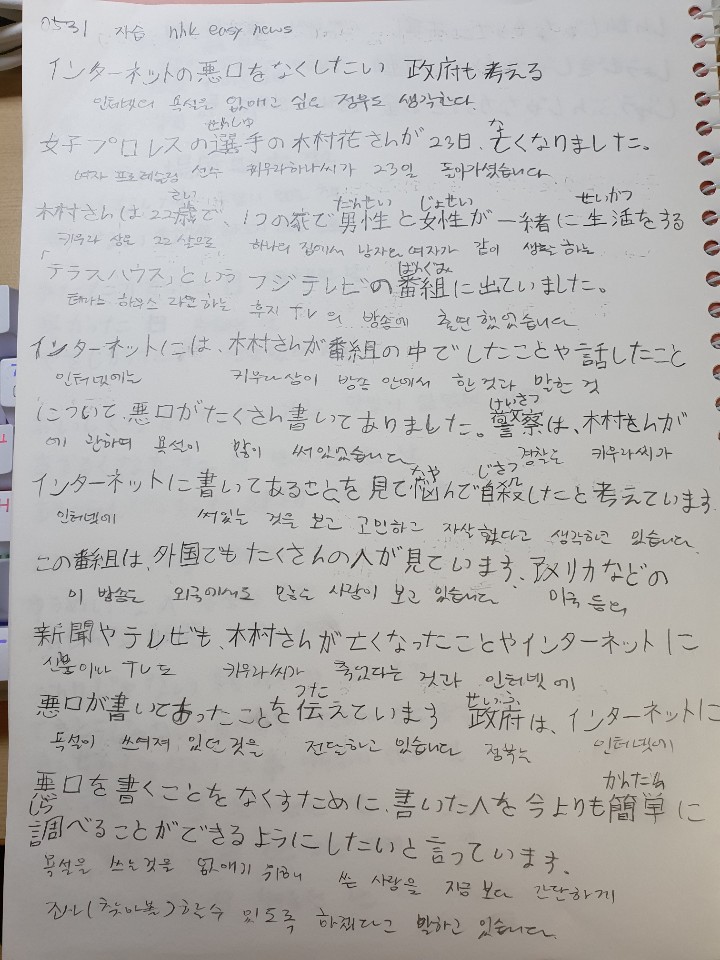 0531 자습 nhk easy news
インターネットの悪口をなくしたい 政府も考える
인터넷의 욕설을 없애고 싶은 정부도 생각한다.
せんしゅ な
女子プロレスの選手の木村花さんが23日、亡くなりました。
여자 프로레슬링 선수 키우라하나씨가 23일 돌아가셨습니다
さい だんせい じょせい せいかつ
木村さんは22歳で、1つの家で男性と女性が一緒に生活をする
키우라 상은 22살으로 하나의 집에서 남자와 여자가 같이 생활 하는
ばんぐみ
「テラスハウス」という フジテレビの番組に出ていました。
테라스 하우스 라면 하는 후지 TV의 방송에 출연했었습니다
インターネットには、木村さんが番組の中でしたことや話したこと
인터넷에는 키우라상이 방송 안에서 한것과 말한 것
けいさつ
について、悪口がたくさん書いてありました。警察は、木村さんが
에 관하여 욕설이 많이 써있었습니다 경찰은 키우라씨가
なや じさつ
インターネットに書いてあることを見て悩んで自殺したと考えています
인터넷에 써있는 것을 보고 고민하고 자살했다고 생각하고 있습니다.
この番組は、外国でもたくさんの人が見ています、アメリカなどの
이 방송은 외국에서도 사람이 보고 있습니다 미국 등의
新聞やテレビも、木村さんが亡くなったことやインターネットに
신문이나 TV도 키우라씨가 죽었다는 것과 인터넷에
つた せいふ
悪口が書いてあったことを伝えています 政府は、インターネットに
욕설이 쓰여져 있던 것을 전달하고 있습니다 정부는 인터넷에
かんたん
悪口を書くことをなくすために、書いた人を今よりも簡単に
しら
調べることができるようにしたいと言っています、
욕설을 쓰는것을 없애기 위해 쓴 사람을 지금 보다 간단하게
조사(찾아봄)할수 있도록 하겠다고 말하고 있습니다.